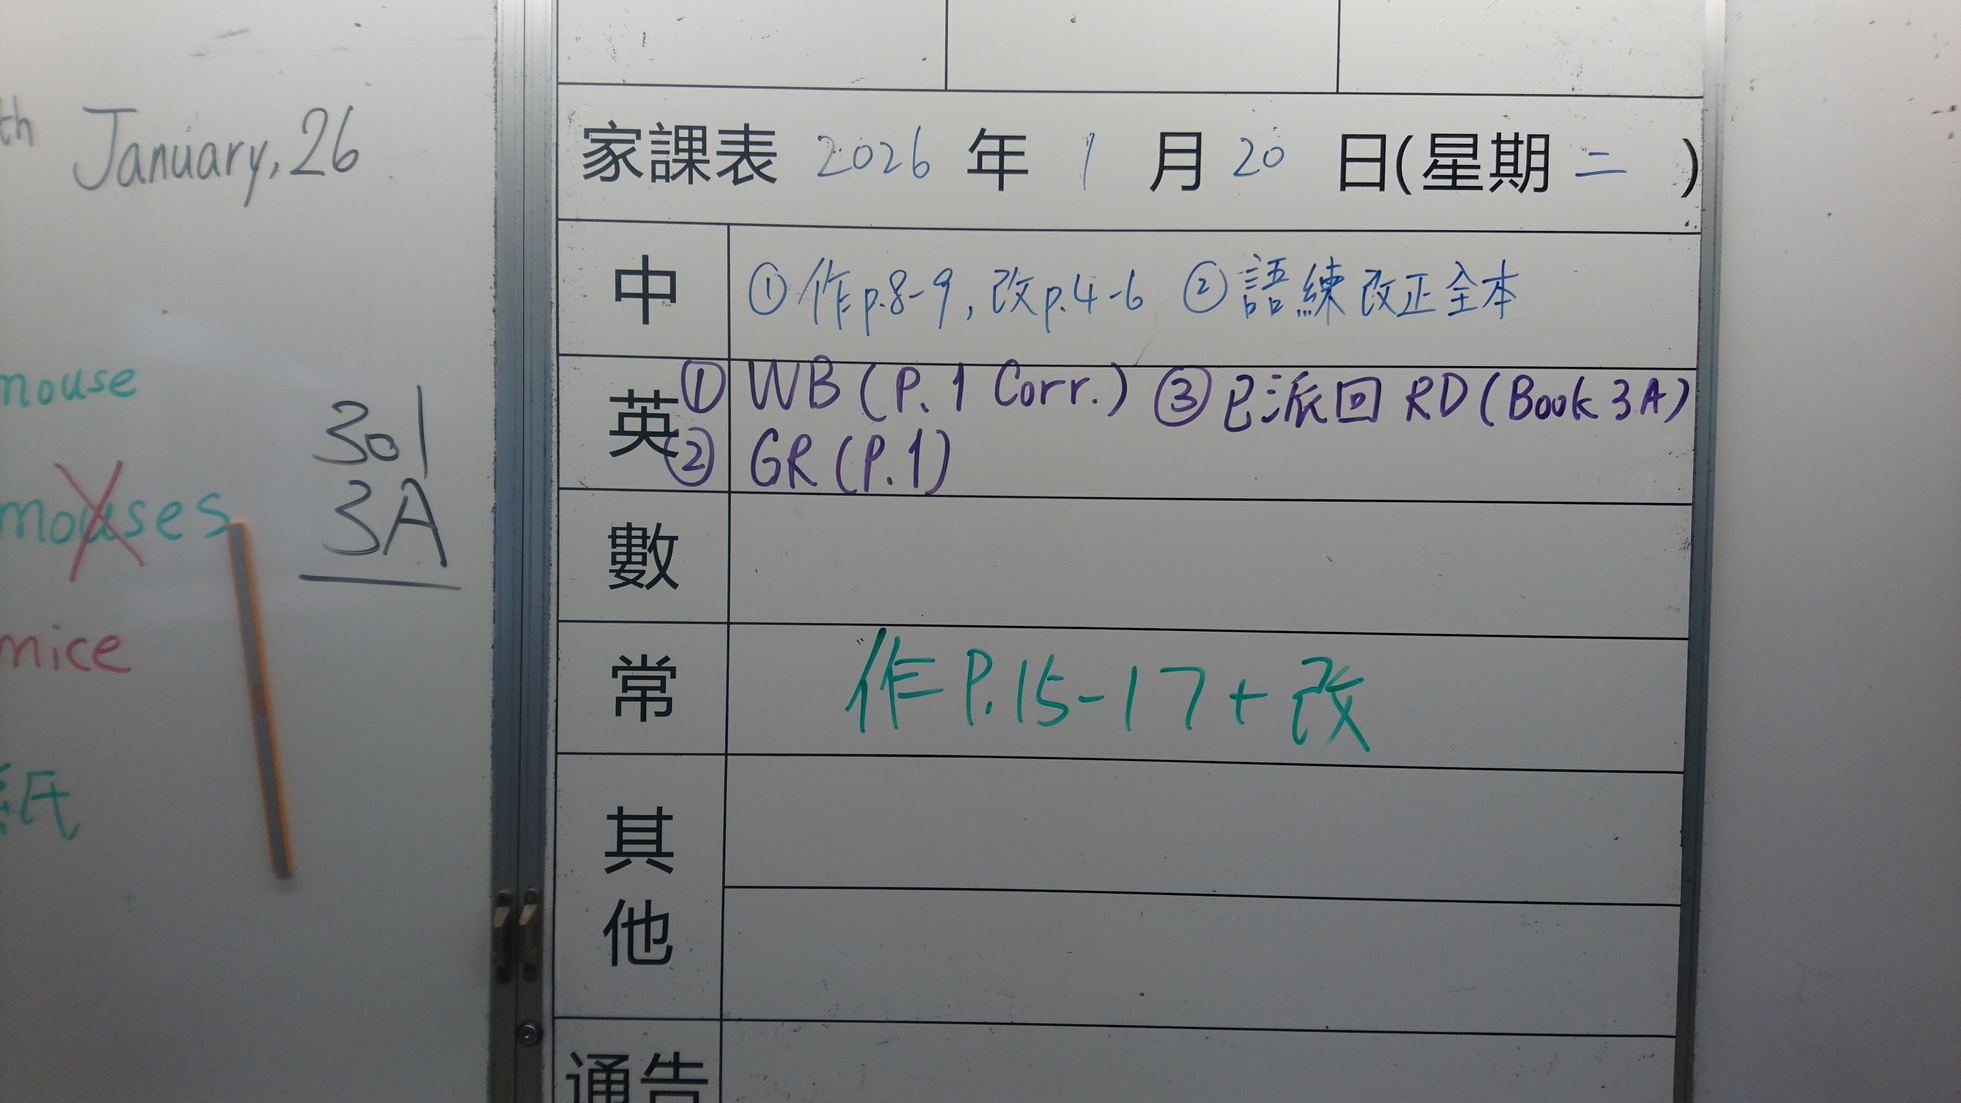 th January, 26
mouse
mouses
mice
紙
301
3A
家課表 2026 年 1 月 20 日(星期 二 )
中 ①作p.8-9,改p.4-6 ②語練改正全本
英 ① WB (P.1 Corr.) ③已派回 RD (Book 3A)
② GR (P.1)
數
常 作P.15-17+改
其他
通告